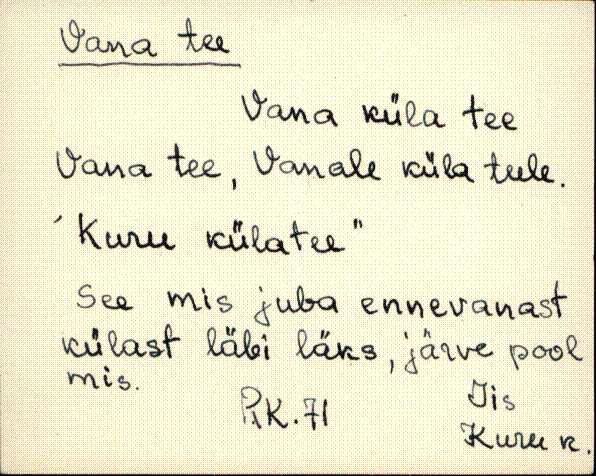 Vana tee
Vana küla tee
Vana tee, Vanale küla teele.
"Kuru külatee"
See mis juba ennevanast
külast läbi läks, järve pool
mis.
RK. 71
Iis
Kuru k.